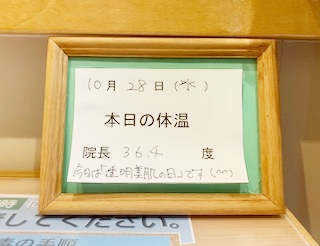 10月28日(水)
本日の体温
院長 36.4 度
今日は「透明美肌の日」です(^^)
してください。
の手順